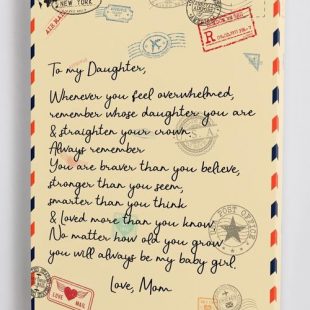 NEW YORK
AIR MAIL
R
To my Daughter,
Whenever you feel overwhelmed,
remember whose daughter you are
& straighten your crown.
Always remember
You are braver than you believe,
stronger than you seem,
smarter than you think
& Loved more than you know
No matter how old you grow
you will always be my baby girl.
Love, Mom
POST OFFICE
LOVE MAIL